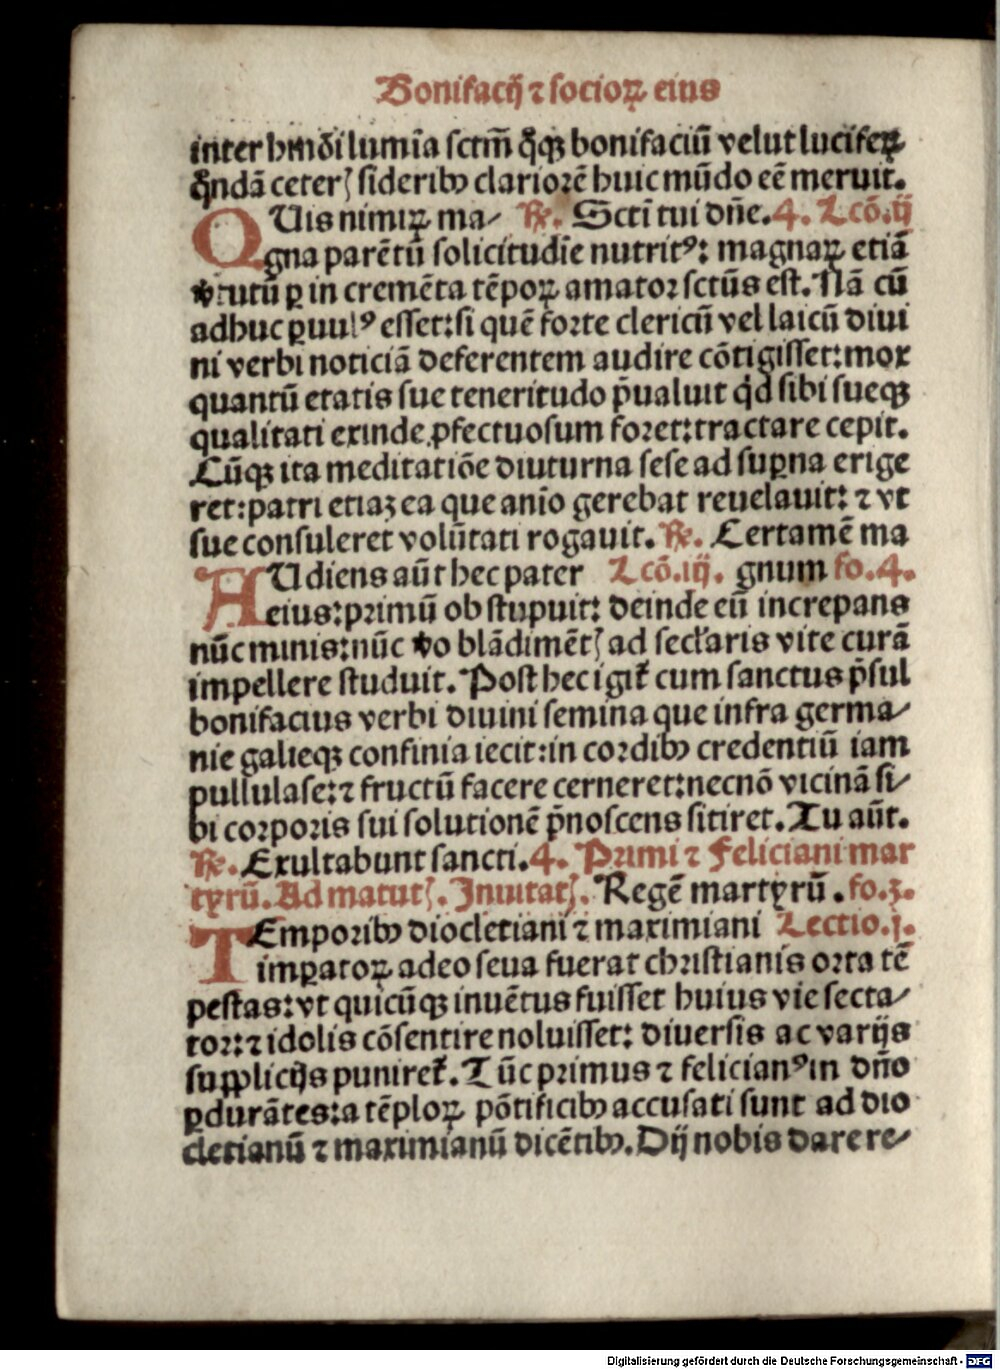 Bonifacij ⁊ socioꝝ eius
inter hmōi lumīa sctm̄ q̄qꝫ bonifaciū velut luciferꝝ
q̄ndā ceterꝭ sideribꝫ clariorē huic mūdo eē meruit.
QUis nimiꝝ ma⸗ ℞. Sctī tui dn̄e. 4. Lcō. ij
gna parētū solicitudīe nutritꝰ: magnaꝝ etiā
v̓tutū ꝑ in cremēta tēpoꝝ amator sctūs est. Nā cū
adhuc ꝑuulꝰ esset: si quē forte clericū vel laicū diui
ni verbi noticiā deferentem audire cōtigisset: mox
quantū etatis sue teneritudo p̄ualuit qd̓ sibi sueqꝫ
qualitati exinde ꝓfectuosum foret: tractare cepit.
Cūqꝫ ita meditatiōe diuturna sese ad suꝑna erige
ret: patri etiaꝫ ea que anīo gerebat reuelauit: ⁊ vt
sue consuleret volūtati rogauit. ℞. Certamē ma
AUdiens aūt hec pater Lcō. iij. gnum fo. 4.
eius: primū ob stupuit: deinde eū increpans
nūc minis: nūc v̓o blādimētꝭ ad secłaris vite curā
impellere studuit. Post hec igit᷑ cum sanctus p̄sul
bonifacius verbi diuini semina que infra germa⸗
nie galieqꝫ confinia iecit: in cordibꝫ credentiū iam
pullulase: ⁊ fructū facere cerneret: necnō vicinā si⸗
bi corporis sui solutionē p̄noscens sitiret. Tu aūt.
℞. Exultabunt sancti. 4. Primi ⁊ Feliciani mar
tyrū. Ad matutꝭ. Inuitatꝭ. Regē martyrū. fo. 3.
TEmporibꝫ diocletiani ⁊ maximiani Lectio. j.
imꝑatoꝝ adeo seua fuerat christianis orta tē
pestas: vt quicūqꝫ inuētus fuisset huius vie secta⸗
tor: ⁊ idolis cōsentire noluisset: diuersis ac varijs
supplicijs puniret᷑. Tūc primus ⁊ felicianꝰ in dn̄o
ꝑdurātes: a tēploꝝ pōtificibꝫ accusati sunt ad dio
cletianū ⁊ maximianū dicētibꝫ. Dij nobis dare re⸗
Digitalisierung gefördert durch die Deutsche Forschungsgemeinschaft - DFG